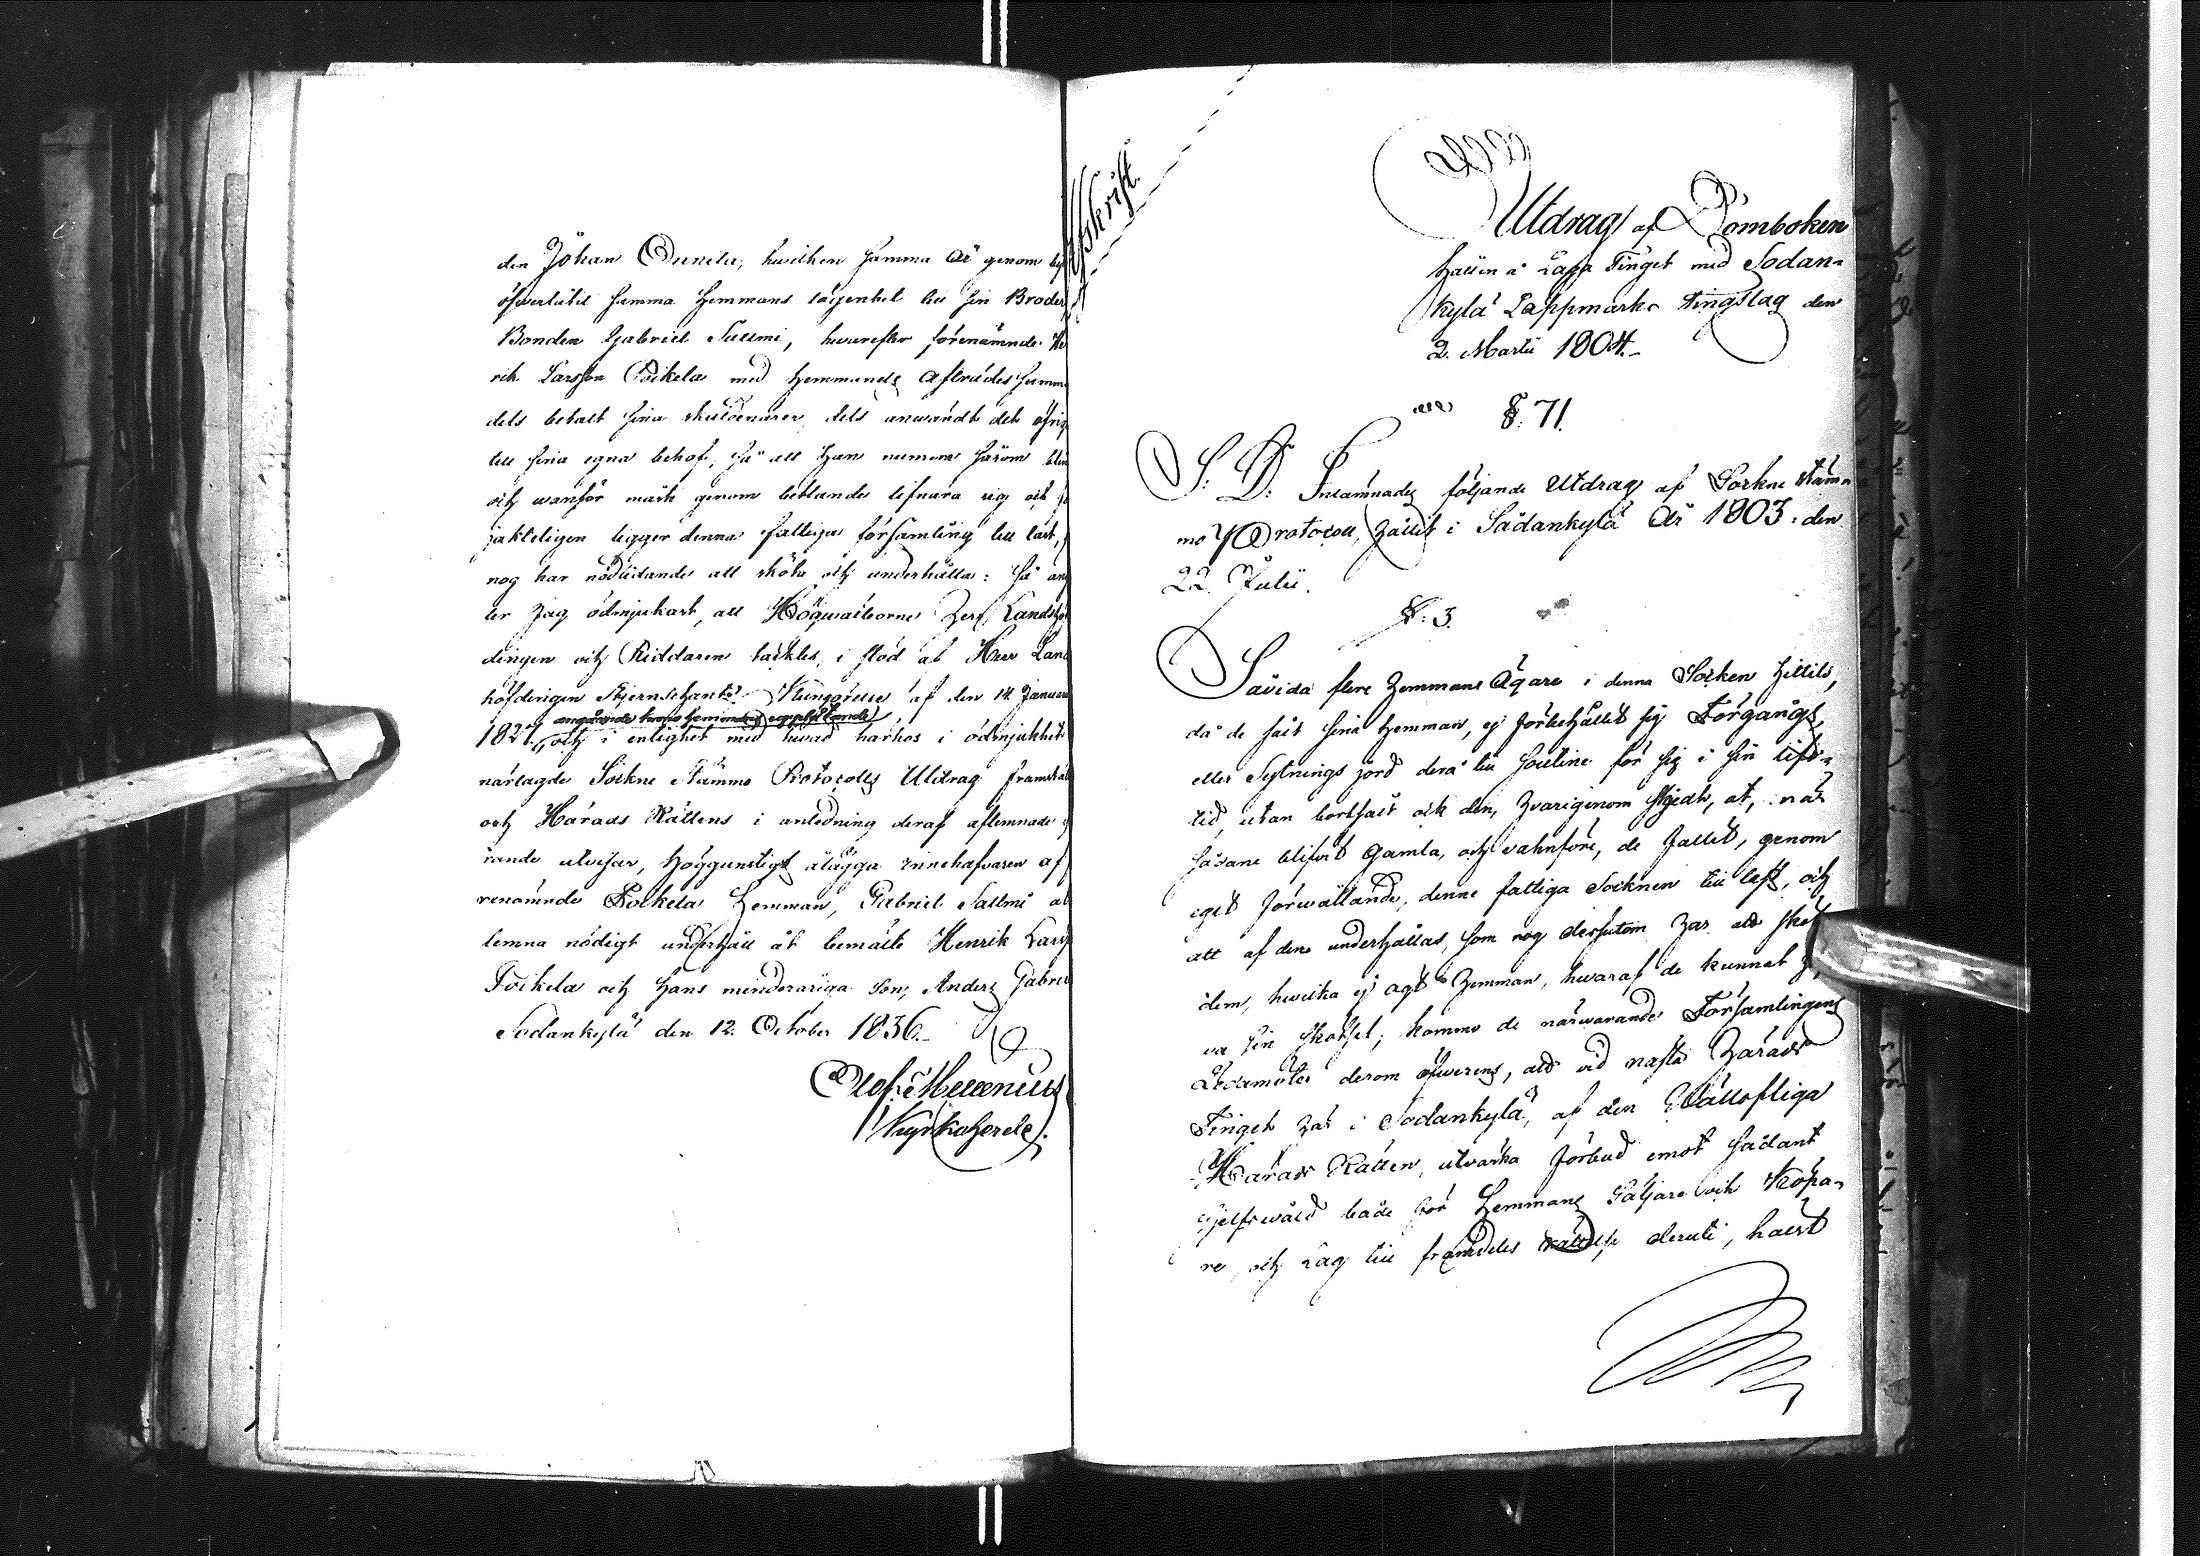 den Johan Onnela, hwilken samma år genom
öfwerlåtit samma Hemmans lägenhet till sin Broder
Bonden Gabriel Sallmi, hwarefter förenämnde
rik Larsson Poikela med Hemmanets Afträdes Summ
dels betalt sina skuldenärer, dels anwändt det öfrig
till sina egna behof, så att han numera såsom blin
och wanför måste genom betlande lifnära sig och
jakteligen ligger denna fattiga församling till last,
nog har nödlidande att sköta och underhålla: så an
ler jag ödmjukast, att Högwälborne Herr Landshöf
dingen och Riddaren täcktes, i stöd af Herr Land
höfdingen Stjernschantz Kungörelse af den 14 Januari
angående krono hemmans upplåtande
1827, och i enlighet med hwad härhos i ödmjukhet
närlagde Sockne Stämmo Protocolls Utdrag framstäl
och Härads Rättens i anledning deraf aflemnade
rande utvisar, höggunstigt ålägga innehafvaren af
renämnde Poikela Hemman, Gabriel Sallmi at
lemna nödigt underhåll åt bemälte Henrik Larss
Poikela och hans minderåriga Son, Anders Gabriel
Sodankylä den 12. October 1836.
Olof Mellenius
Kyrkoherde.
Afskrift.
Utdrag af Domboken
hållen å Laga Tinget med Sodan-
kylä Lappmarks Tingslag den
2. Martii 1804.
§. 71.
S. D. Inlämnades följande Utdrag af Sockne Stäm-
mo Protocoll, hållit i Sådankylä År 1803 den
22. Julii.
§. 3.
Såvida flere Hemmans Ägare i denna Socken hittils,
då de sålt sina hemman, ej förbehållit sig Förgångs
eller Sytnings jord derå till Soutine för sig i sin lifs-
tid, utan bortsålt ock den, hvarigenom skjedt, at, när
sådane blifvit gamla, och vahnföre, de fallit, genom
eget förwållande, denne fattiga Socknen till last, och
att af den underhållas, som nog dessutom har att sköt
dem, hwilka ej ägt Hemman, hwaraf de kunnat
va sin skötsel; kommo de närwarande Församlingens
Ledamöter derom öfwerens, att vid nästa Härads
Tinget här i Sodankylä, af den Wällofliga
Härads Rätten, utvärka förbud emot sådant
sjelfswåld både för Hemmans Säljare och Köpa-
re, och Lag till framdeles rättelse deruti, hälst